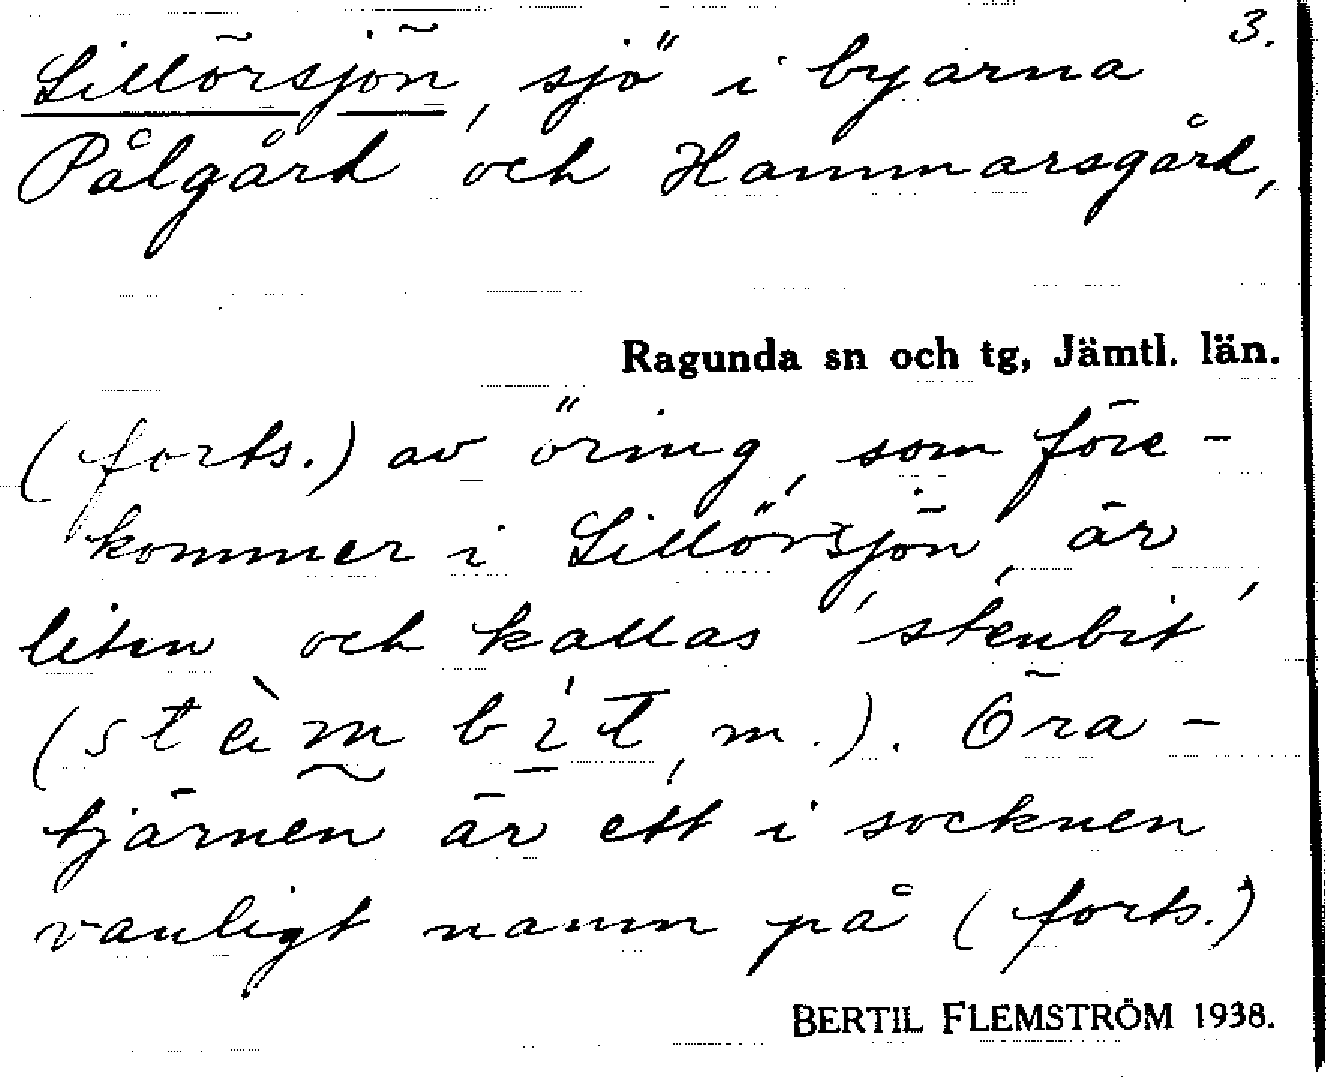 3.
Lillörsjön, sjö i byarna
Pålgård och Hammarsgård,
Ragunda sn och tg, Jämtl. län.
(forts.) av öring, som före-
kommer i Lillörsjön, är
liten och kallas 'stenbit'
(stèmbit, m.). Öra-
tjärnen är ett i socknen
vanligt namn på (forts.)
BERTIL FLEMSTRÖM 1938.